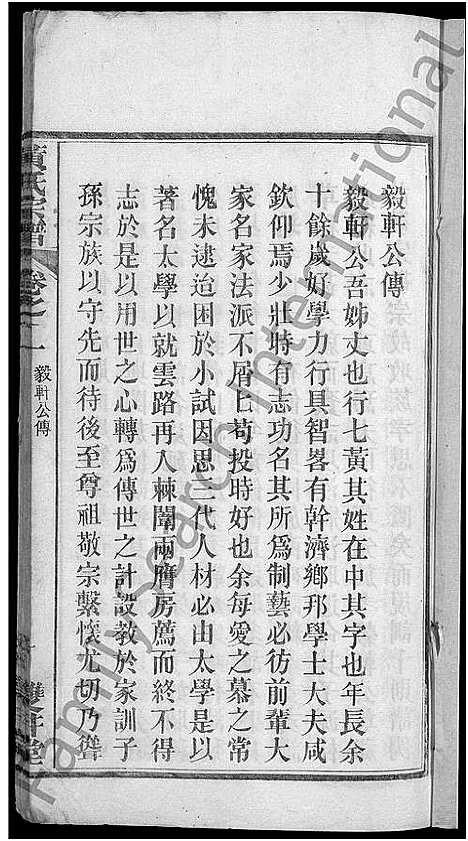 毅軒公傳
毅軒公吾姊丈也行七黃其姓在中其字也年長余
十餘歲好學力行具智畧有幹濟鄉邦學士大夫咸
欽仰焉少壯時有志功名其所爲制藝必彷前輩大
家名家法派不屑匕苟投時好也余每愛之慕之常
愧未逮迨困於小試因思三代人材必由太學是以
著名太學以就雲路再入棘闈兩膺房薦而終不得
志於是以用世之心轉爲傳世之計設教於家訓子
孫宗族以守先而待後至尊祖敬宗繫懷尤切乃聳
黃氏宗譜 卷之一
毅軒公傳
雙井堂
Family Search International